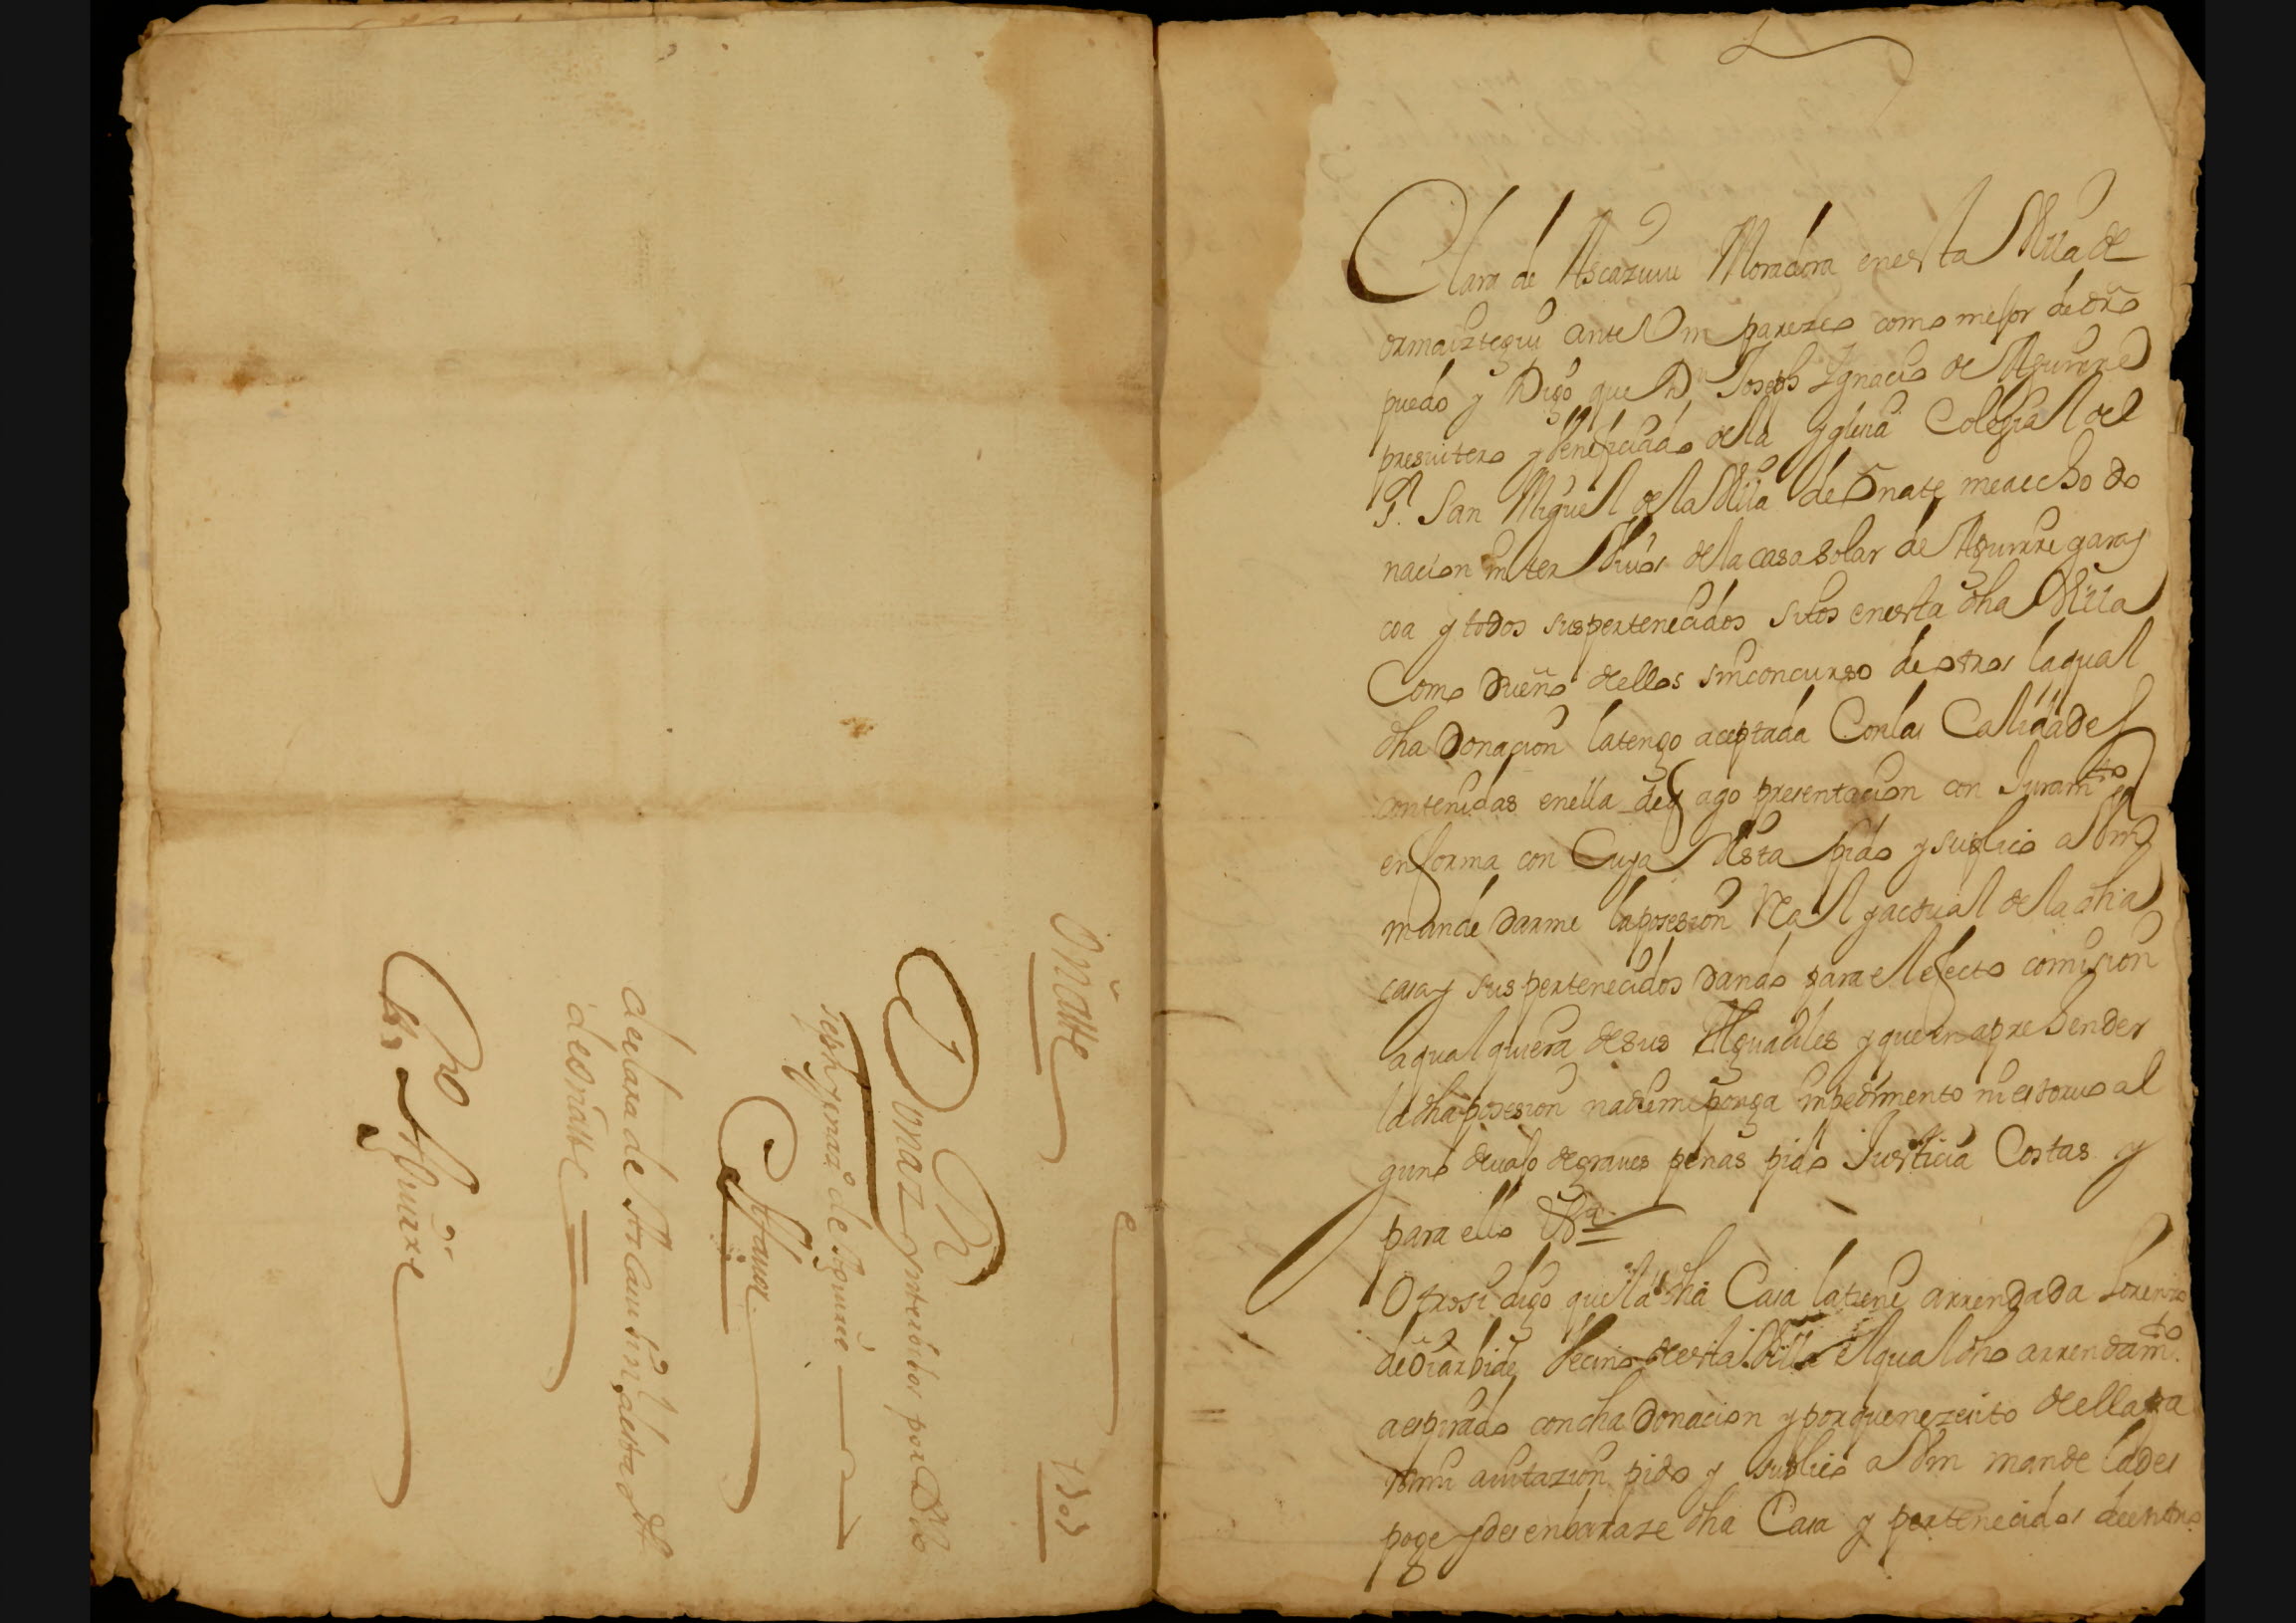 Oñatte
1705
Donaz.on ynterbibos por Dn Jo
seph Ygnaº de Aguirre
Afauor
de Clara de Ascausu, natª dt
de oñatte
Pro Aguirre
Clara de Ascazuuu Moradora enesta Villa de
ormaiztegui ante Vm parezco como mejor de drº
puedo y Digo que Dn Joseph Ygnacio de Aguirre
presuitero y Veneficiado de la yglesia Colegial del
Sr. San Miguel de la Villa de Onate me a echo do
nacion inter Viuos de la casa solar de Aguirre garay
coa y todos sus pertenecidos sitos enesta dha Villa
Como Dueño dellos sin concurso de otros la qual
dha Donacion la tengo aceptada Con las Calidades
contenidas enella de q ago presentacion con Juramto
en forma con Cuya Vista pido y suplico a Vm
mande darme la posesion Real y actual de la dha
casa y sus pertenecidos dando para el efecto comision
a qual quiera de sus Alguaciles y que en aprehender
la dha posesion nadie me ponga inpedimento ni estoruo al
guno devajo de graues penas pido Justicia Costas y
para ello &ª
Otrosi digo que la dha Casa la tiene arrendada Lorenzo
de Oiarbide Vecino de esta Villa el qual dho arrendamto.
a espirado con dha Donacion y porque nezesito della pa
mi auitazion pido y suplico a Vm mande la des
poge y desenbaraze dha Casa y pertenecidos dentro